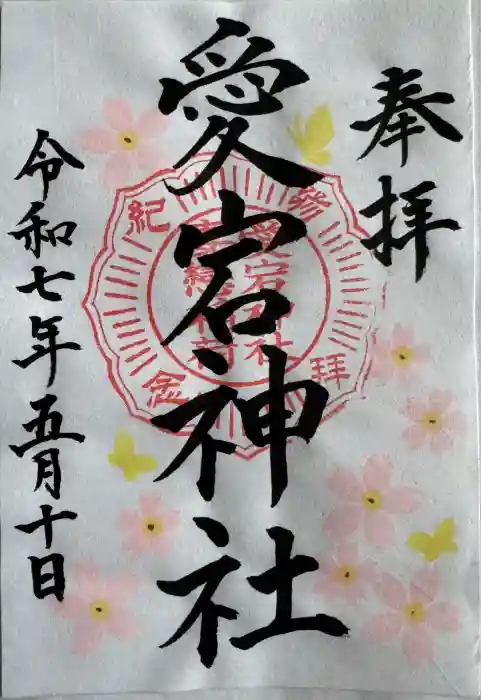 奉拝
愛宕神社
参拝
紀念
愛宕神社
令和七年五月十日